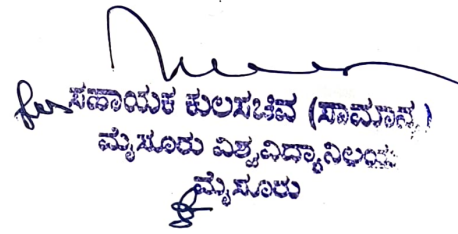 ಸಹಾಯಕ ಕುಲಸಚಿವ (ಸಾಮಾನ್ಯ)
ಮೈಸೂರು ವಿಶ್ವವಿದ್ಯಾನಿಲಯ
ಮೈಸೂರು